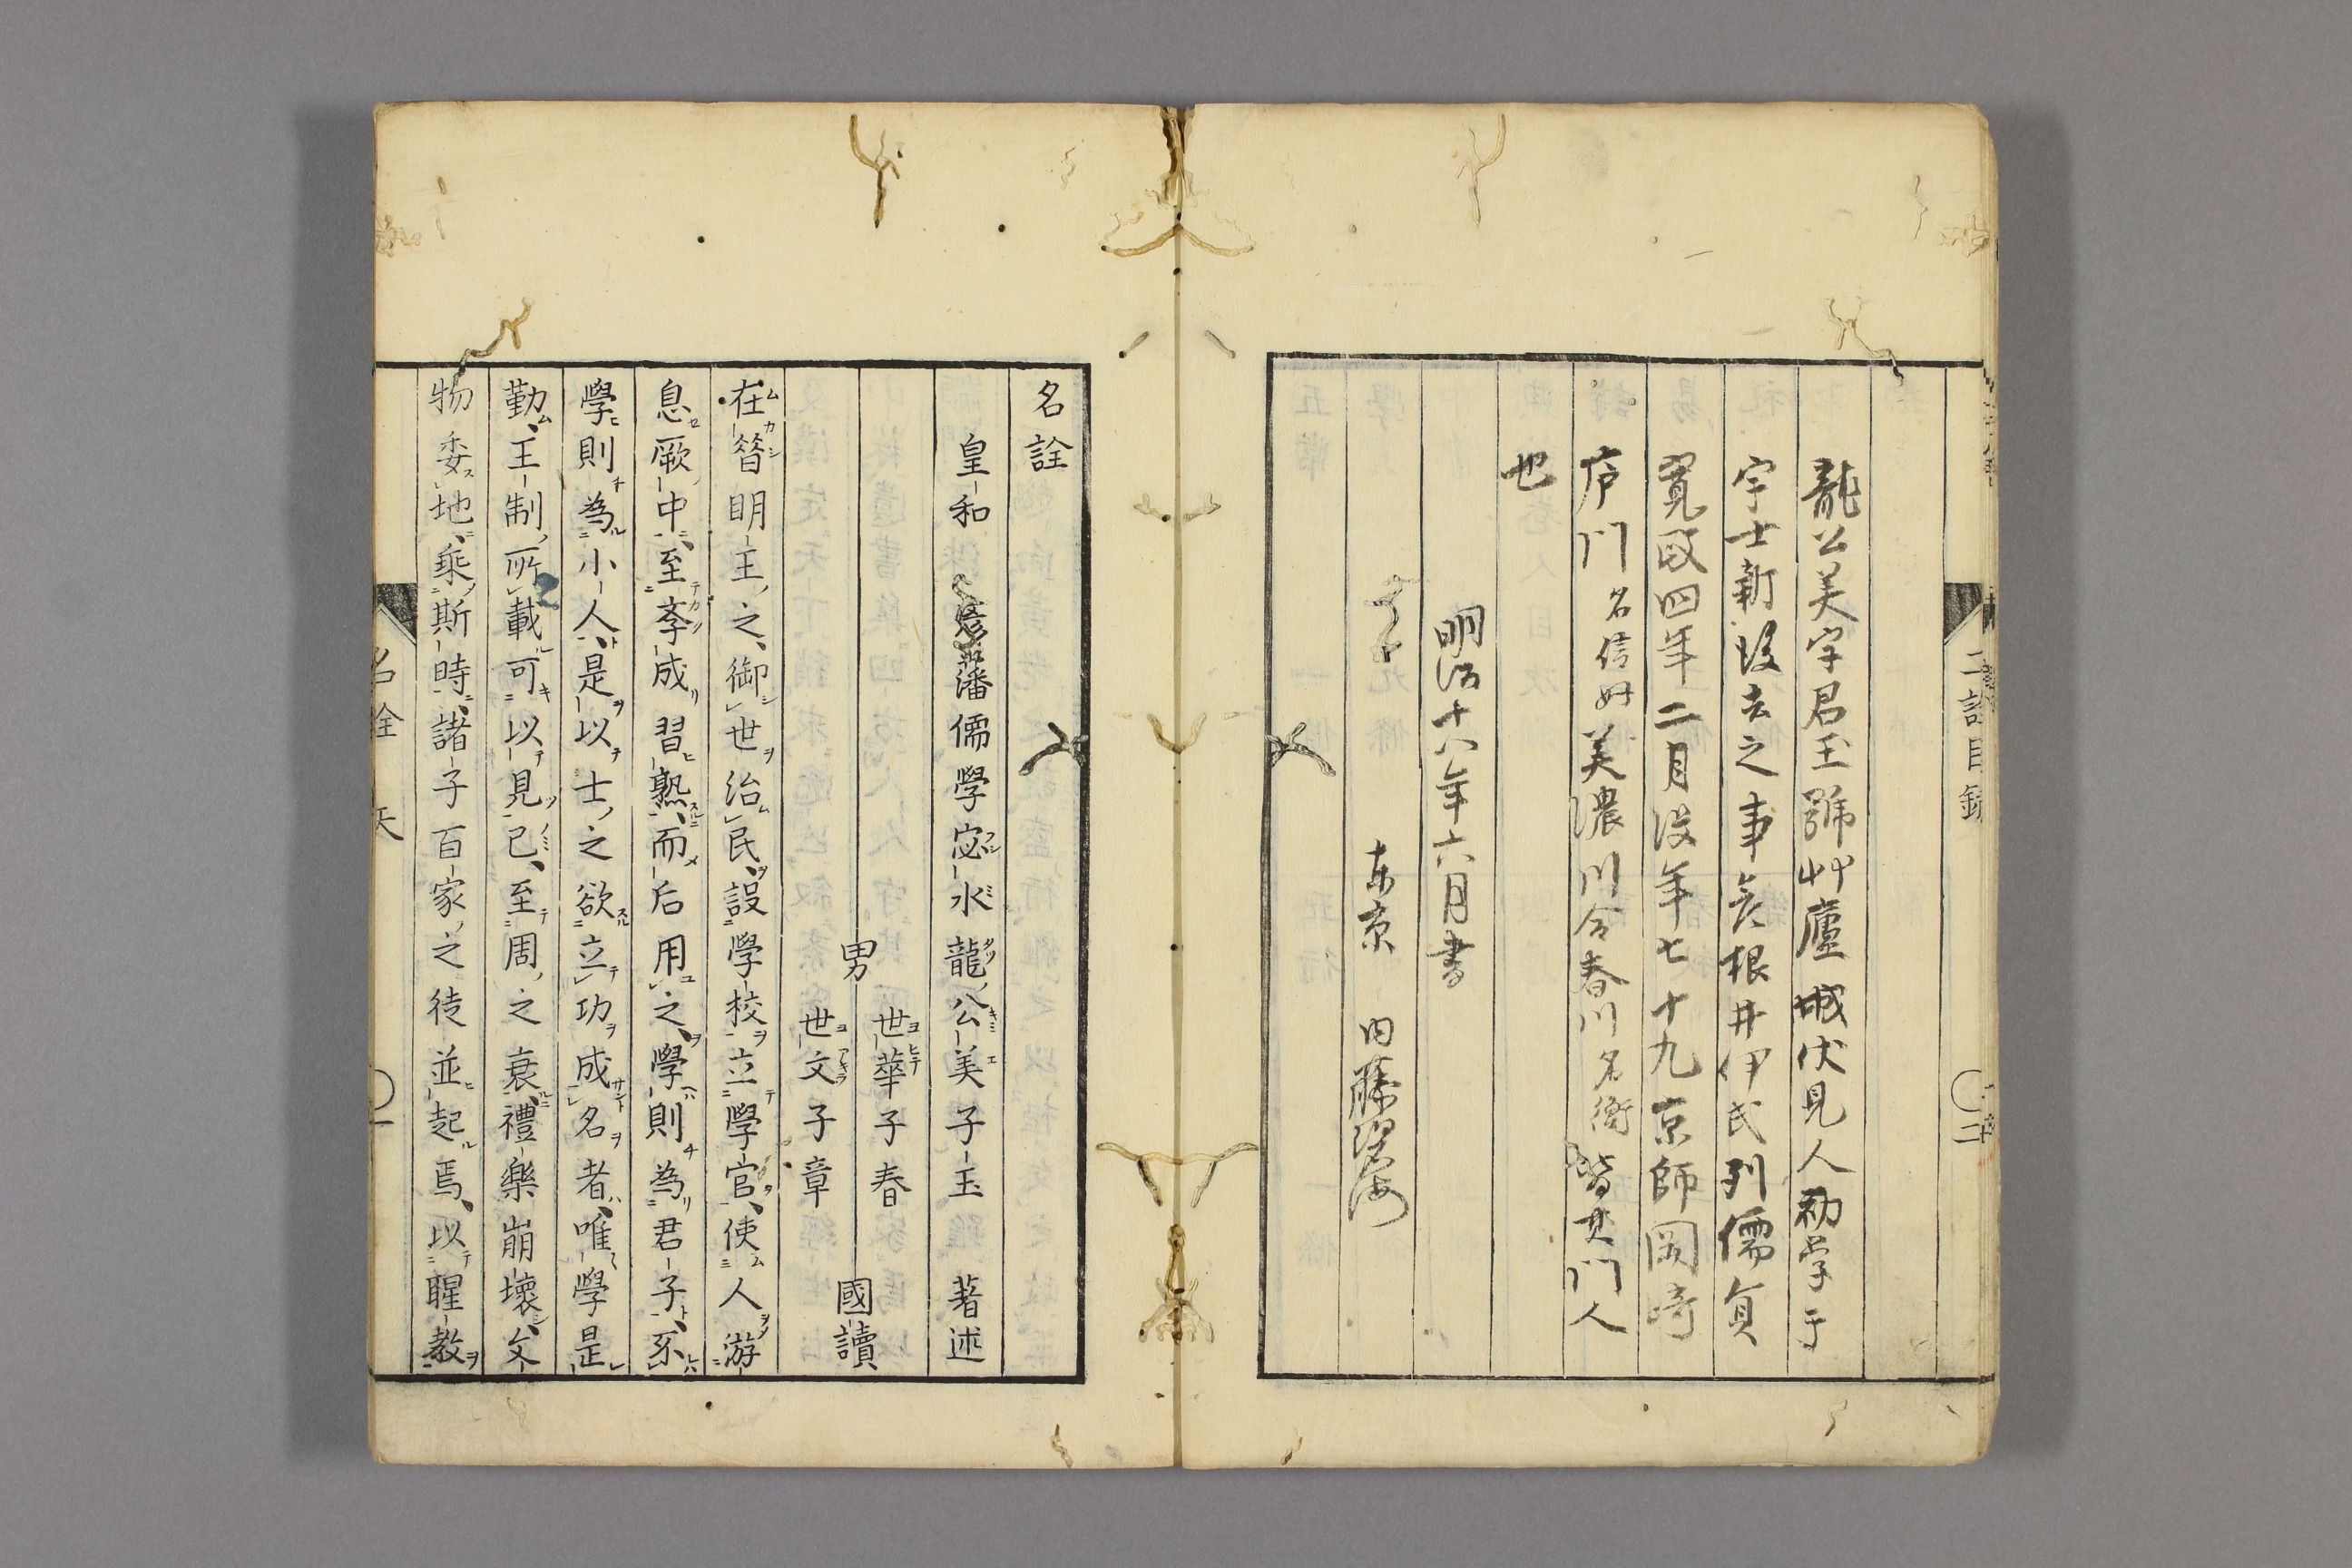 二詮目録
〇二
龍公美字君玉號艸廬城伏見人初学于
宇士新後去之事彦根井伊氏列儒員
寛政四年二月没年七十九京師岡崎
庐門名信好美濃川合春川名衡皆其門人
也
明治十八年六月書
東京 内藤
名詮
皇和 藩儒學宓水龍公美子玉 著述
男 世華子春 國讀
世文子章
在昝明王之御世治民設學校立學官使人游
息厥中至孝成習熟而后用之學則為君子不
學則為小人是以士之欲立功成名者唯學是
勤王制所載可以見已至周之衰禮樂崩壞文
物委地乘斯時諸子百家之徒並起焉以聖教
名詮 天 〇一